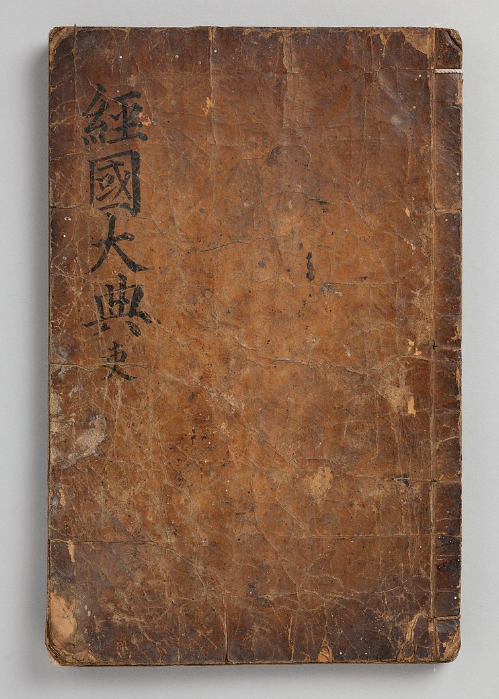 經國大典 吏